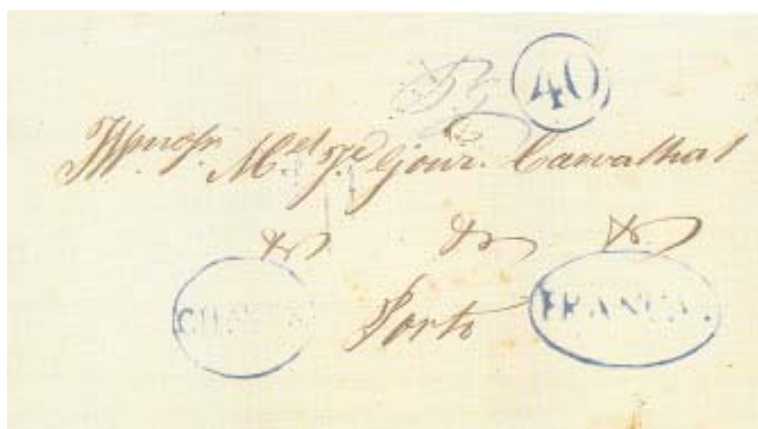 40
Illmo Snr. M.el J.e Carvalhal
&a &a &a
Porto
CHAVES
FRANCA.